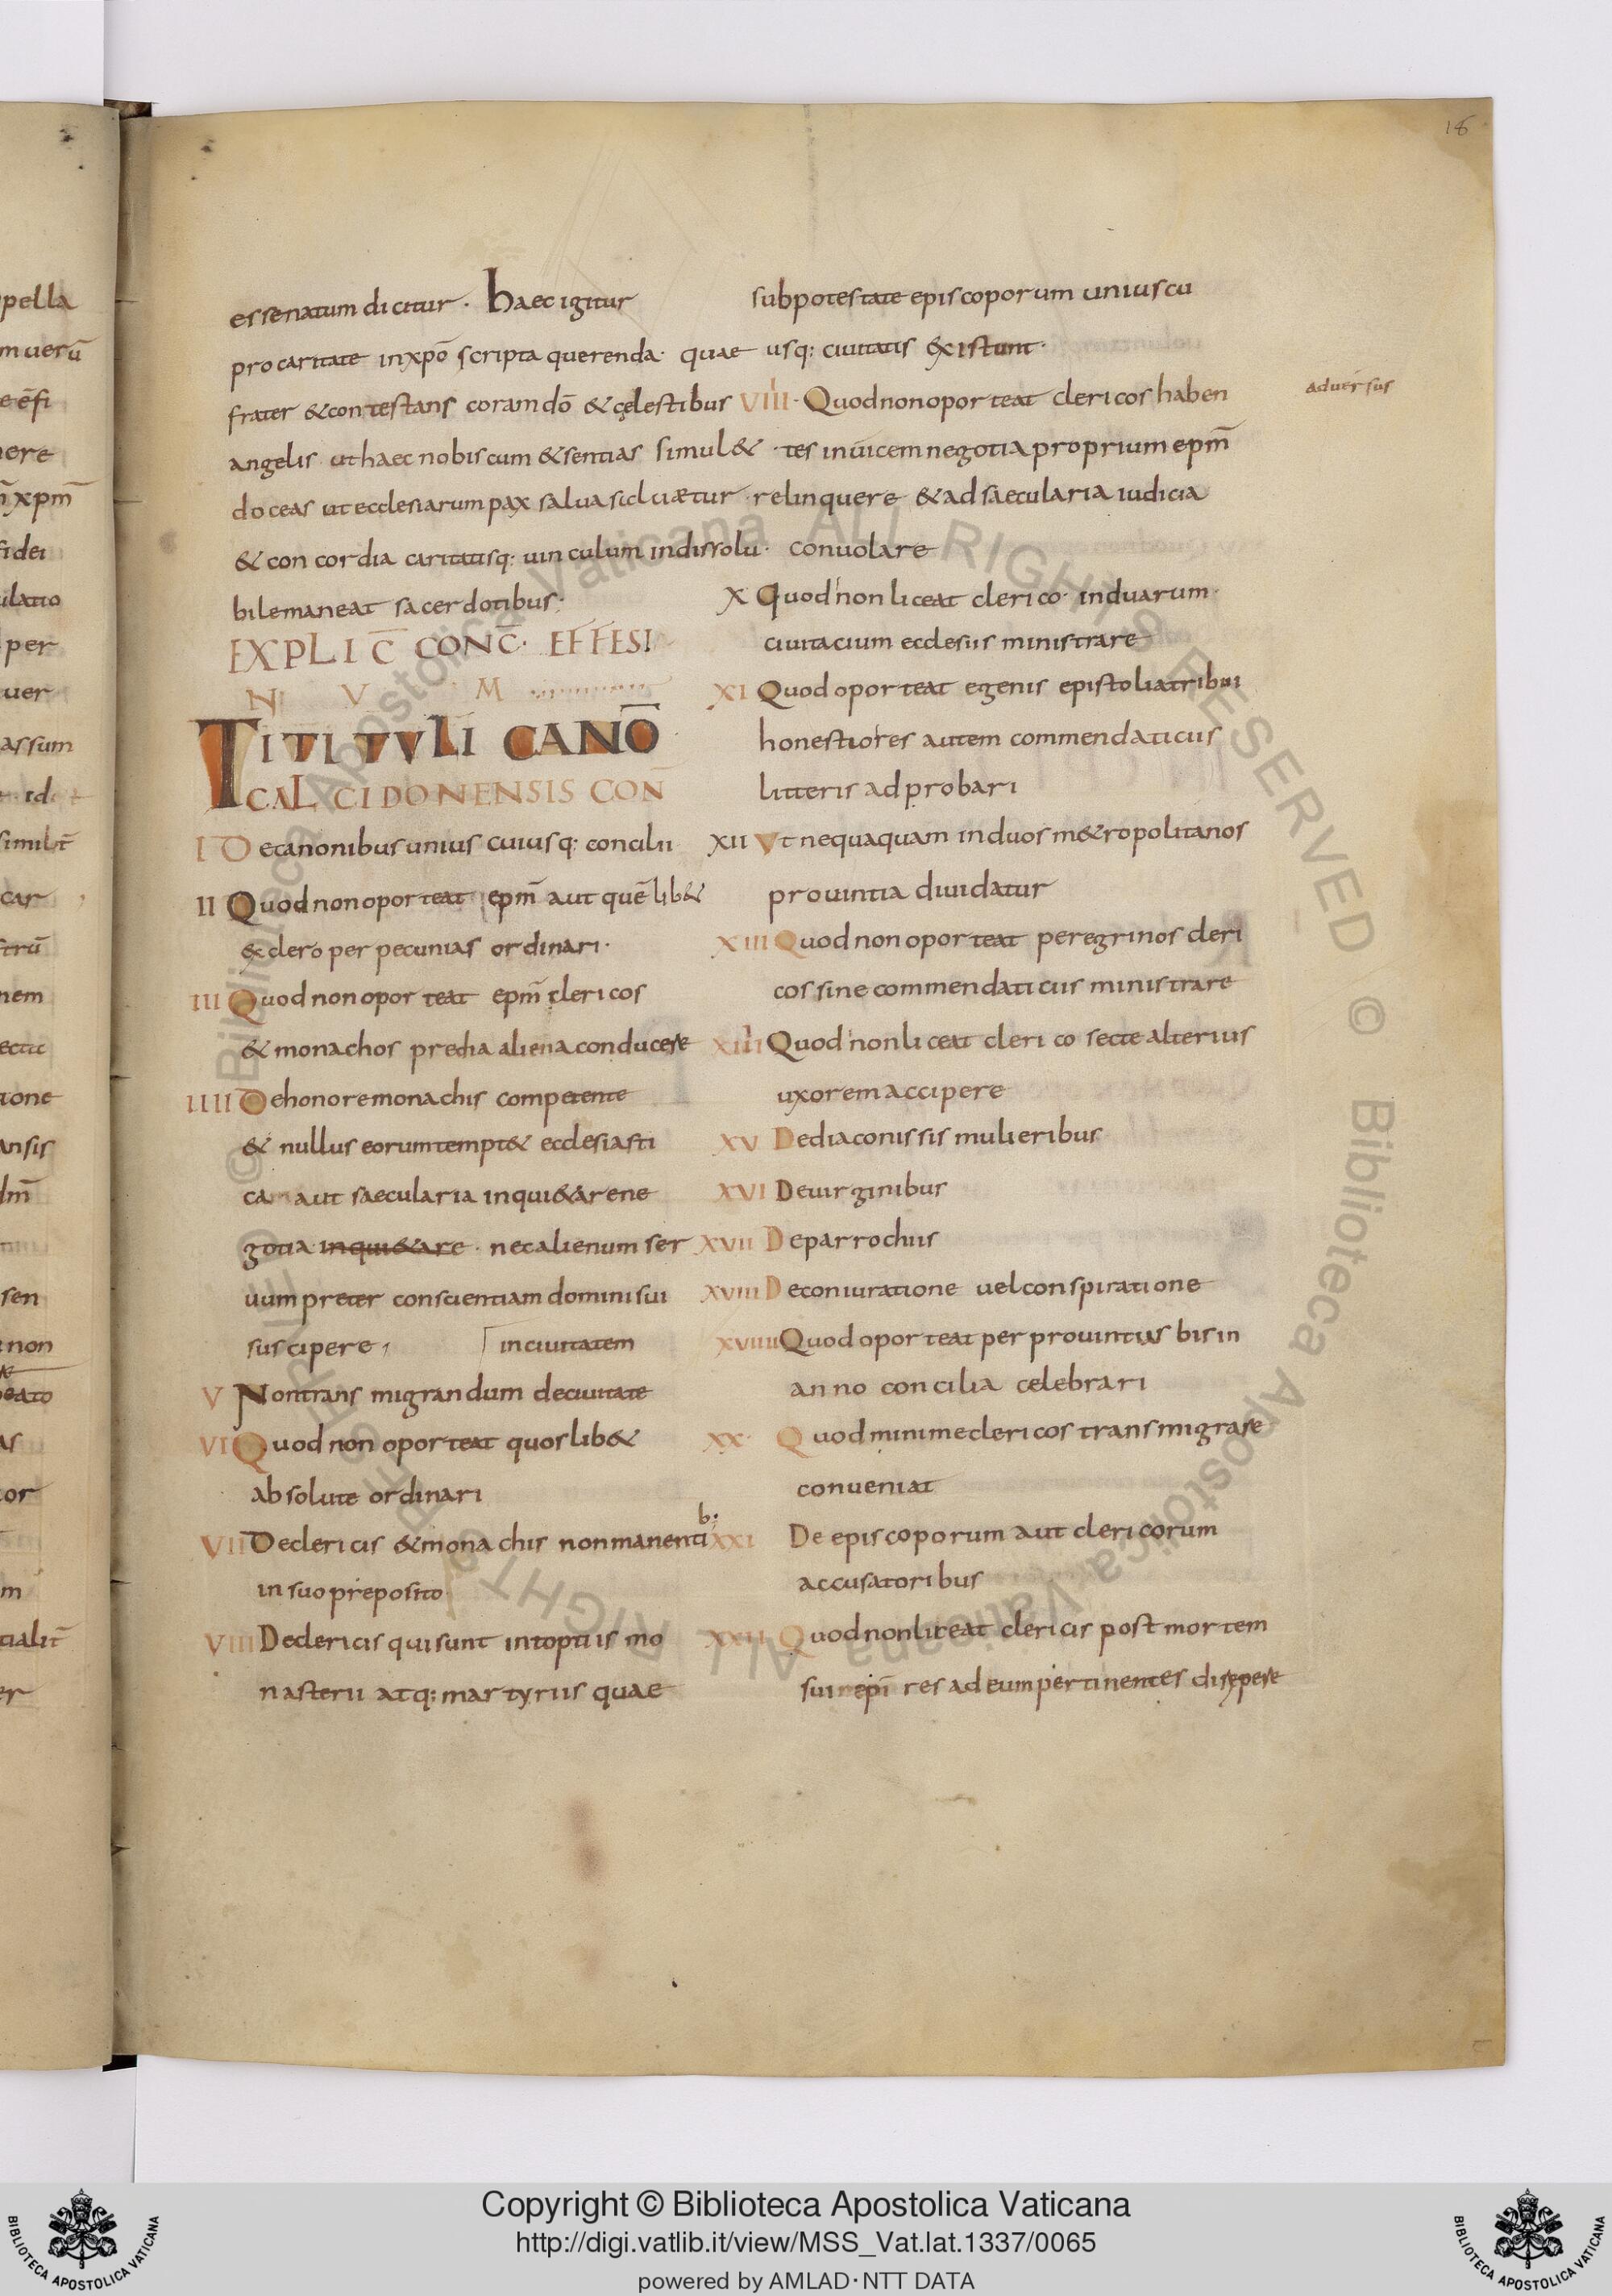 18
essenatum dicitur. haec igitur
pro caritate in xpō scripta querenda. quae
frater & contestans coram dō & cęlestibus
angelis ut haec nobiscum & sentias simul &
doceas ut ecclesiarum pax salua
& concordia caritatisq: uinculum indissolu
bile maneat sacerdotibus;
EXPLIC̄ CONC̄. EFFESI
N V M
TITI TVLI CANŌ
CALCIDONENSIS CON̄
I De canonibus unius cuiusq: concilii
II Quod non oporteat epm̄ aut quē lib&
& clero per pecunias ordinari.
III Quod non oporteat epm̄ clericos
& monachos predia aliena conducere
IIII De honore monachis competente
& nullus eorum tempt& ecclesiasti
ca aut saecularia inqui&are ne
gotia inqui&are. nec alienum ser
uum preter conscientiam domini sui
suscipere; in ciuitatem
V Non transmigrandum de ciuitate
VI Quod non oporteat quoslib&
absolute ordinari
VII De clericis & monachis non manenti b;
in suo preposito
VIII De clericis qui sunt in toptiis mo
nasterii atq: martyriis quae
sub potestate episcoporum uniuscu
usq: ciuitatis existunt.
VIIII. Quod non oporteat clericos haben
tes inuicem negotia proprium epm̄
relinquere & ad saecularia iudicia
conuolare
X Quod non liceat clerico in duarum
ciuitacium ecclesiis ministrare
XI Quod oporteat egenis epistolia tribui
honestiores autem commendaticiis
litteris adprobari
XII Vt nequaquam in duos m&ropolitanos
prouintia diuidatur
XIII Quod non oporteat peregrinos cleri
cos sine commendaticiis ministrare
XIIII Quod non liceat clerico secte alterius
uxorem accipere
XV De diaconissis mulieribus
XVI De uirginibus
XVII De parrochiis
XVIII De coniuratione uel conspiratione
XVIIII Quod oporteat per prouintias bis in
anno concilia celebrari
XX. Quod minime clericos transmigrare
conueniat
XXI De episcoporum aut clericorum
accusatoribus
XXII Quod non liceat clericis post mortem
sui epī res ad eum pertinentes
aduersus
Copyright © Biblioteca Apostolica Vaticana
http://digi.vatlib.it/view/MSS_Vat.lat.1337/0065
powered by AMLAD·NTT DATA
BIBLIOTECA APOSTOLICA VATICANA
BIBLIOTECA APOSTOLICA VATICANA
© Biblioteca Apostolica Vaticana ALL RIGHTS RESERVED © Biblioteca Apostolica Vaticana ALL RIGHTS RESERVED